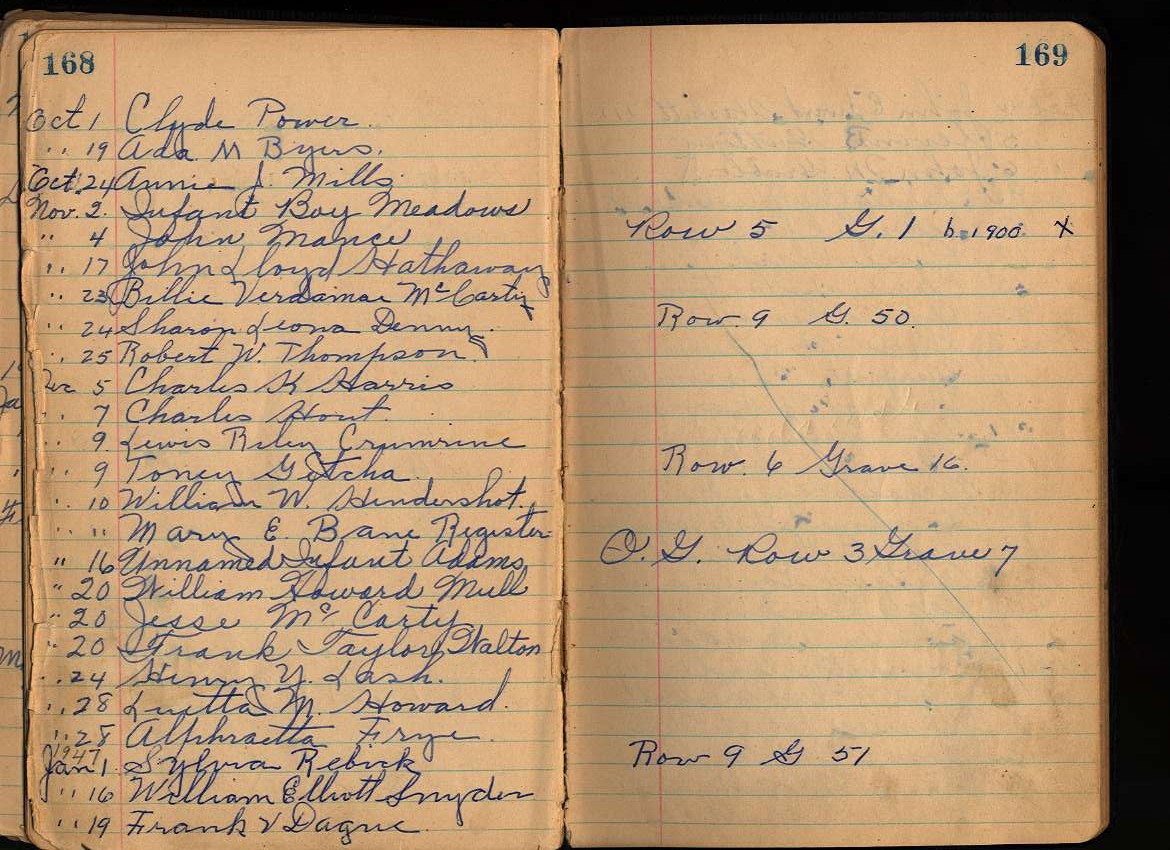 168
Oct 1 Clyde Power.
" 19 Ada M Byers.
Oct. 24 Annie J. Mills
Nov. 2. Infant Boy Meadows
" 4 John Mance
" 17 John Lloyd Hathaway
" 23 Billie Verdamae McCarty
" 24 Sharon Leona Denny
" 25 Robert W. Thompson
Dec 5 Charles K Harris
" 7 Charles Hout.
" 9. Lewis Riley Crumrine
" 9 Toney
" 10 William W. Hendershot.
" " Mary E. Bane Register
" 16 Unnamed Infant Adams
" 20 William Howard Mull
" 20 Jesse McCarty
" 20 Frank Taylor Walton
" 24 Henry Y. Lash.
" 28 Luetta M. Howard.
" 28 Alphraetta Frye
1947
Jan 1. Sylvia Rebick
" 16 William Elliott Snyder
" 19 Frank V Dague
169
Row 5 G. 1 b. 1900 X
Row. 9 G. 50.
Row. 6 Grave 16.
O. G. Row 3 Grave 7
Row 9 G 51